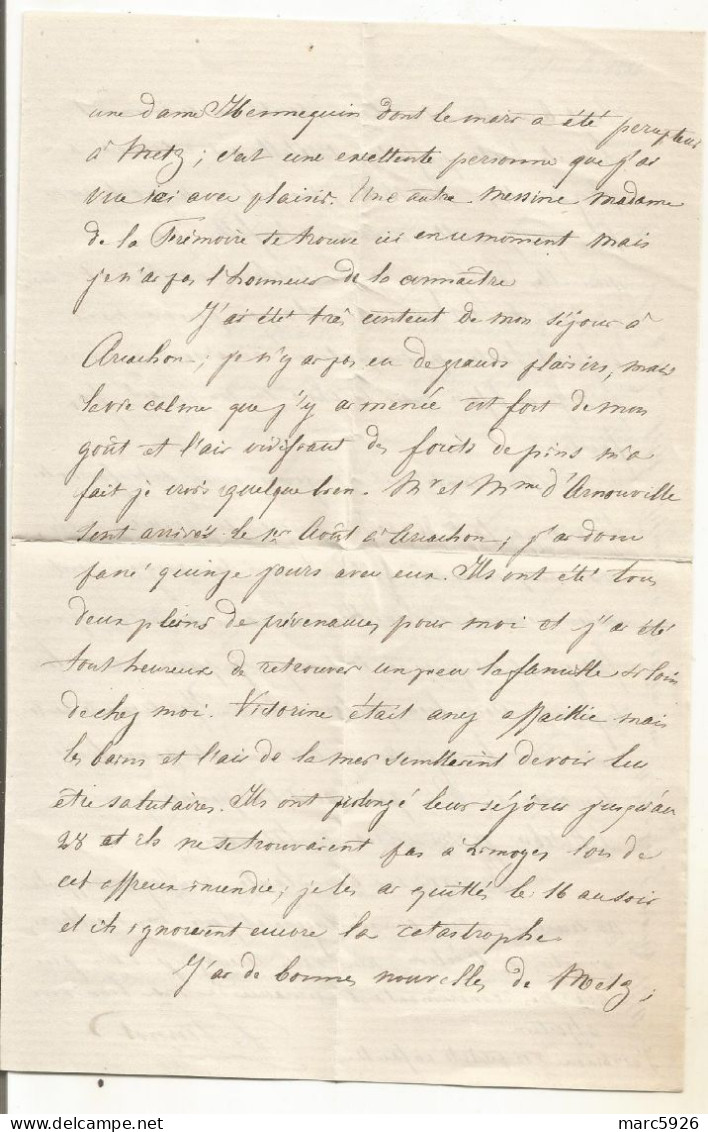 une dame Hennequin dont le mari a été percepteur
à Metz ; c'est une excellente personne que j'ai
vue ici avec plaisir. Une autre Messine Madame
de la Frémoire se trouve ici en ce moment mais
je n'ai pas l'honneur de la connaître
J'ai été très content de mon séjour à
Arcachon ; je n'y ai pas eu de grands plaisirs, mais
la vie calme que j'y ai menée est fort de mon
goût et l'air vivifiant des forêts de pins m'a
fait je crois quelque bien. Mr et Mme d'Arnouville
sont arrivés le 1er Août à Arcachon ; j'ai donc
passé quinze jours avec eux. Ils ont été tous
deux pleins de prévenances pour moi et j'ai été
tout heureux de retrouver un peu la famille si loin
de chez moi. Victorine était assez affaiblie mais
les bains et l'air de la mer semblaient devoir lui
être salutaires. Ils ont prolongé leur séjour jusqu'au
28 et ils ne se trouvaient pas à lors de
cet affreux incendie ; je les ai quittés le 16 au soir
et ils ignoraient encore la catastrophe
J'ai de bonnes nouvelles de Metz ;
marc5926